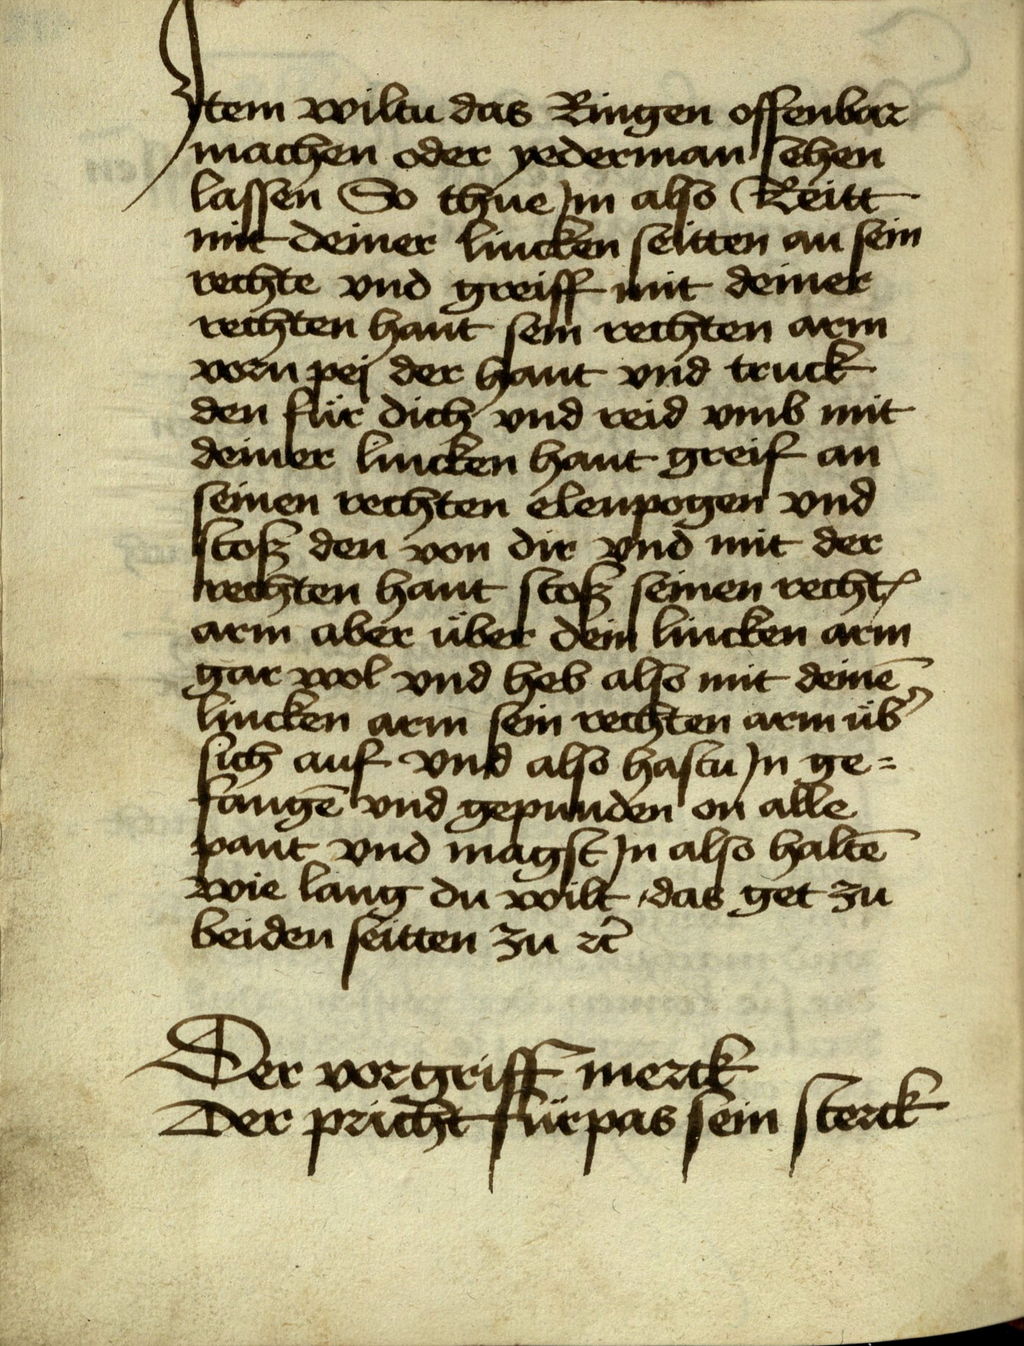 Jtem wiltu das Ringen offenbar
machen oder yederman sehen
lassen So thue Jm also Reitt
mit deiner lincken seitten an sein
rechte vnd greiff mit deiner
rechten hant sein rechten arm
vorn pej der hant vnd truck
den für dich vnd reid vmb mit
deiner lincken hant greif an
seinen rechten elenpogen vnd
stoß den von dir vnd mit der
rechten hant stoß seinen recht̾
arm aber über dein lincken arm
gar wol vnd heb also mit deinē
lincken arm sein rechten arm üb̾
sich auf vnd also hastu Jn ge=
fangē vnd gepunden on alle
pant vnd magst Jn also haltē
wie lang du wilt das get zu
beiden seitten zu ꝛc̄
Der vorgriff merck
Der pricht fürpas sein sterck